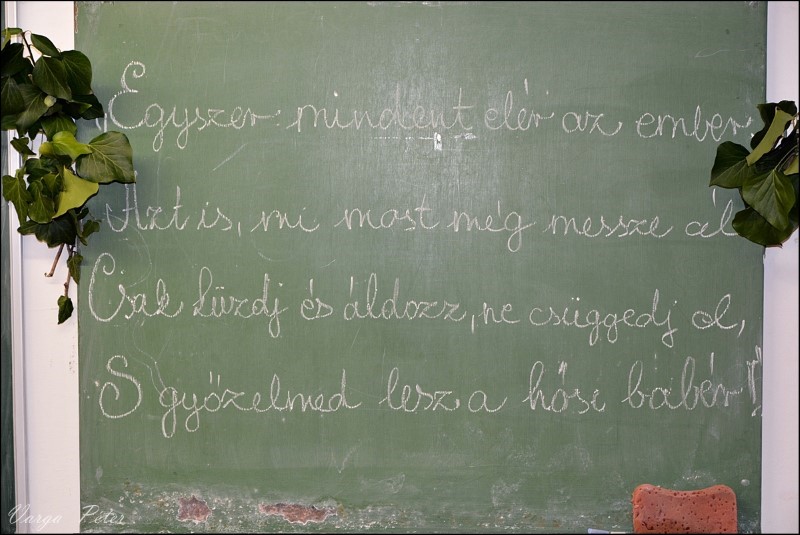 „Egyszer mindent elér az ember
Azt is, mi most még messze ál
Csak küzdj és áldozz, ne csüggedj el,
S győzelmed lesz a hősi babér!"
Varga Péter